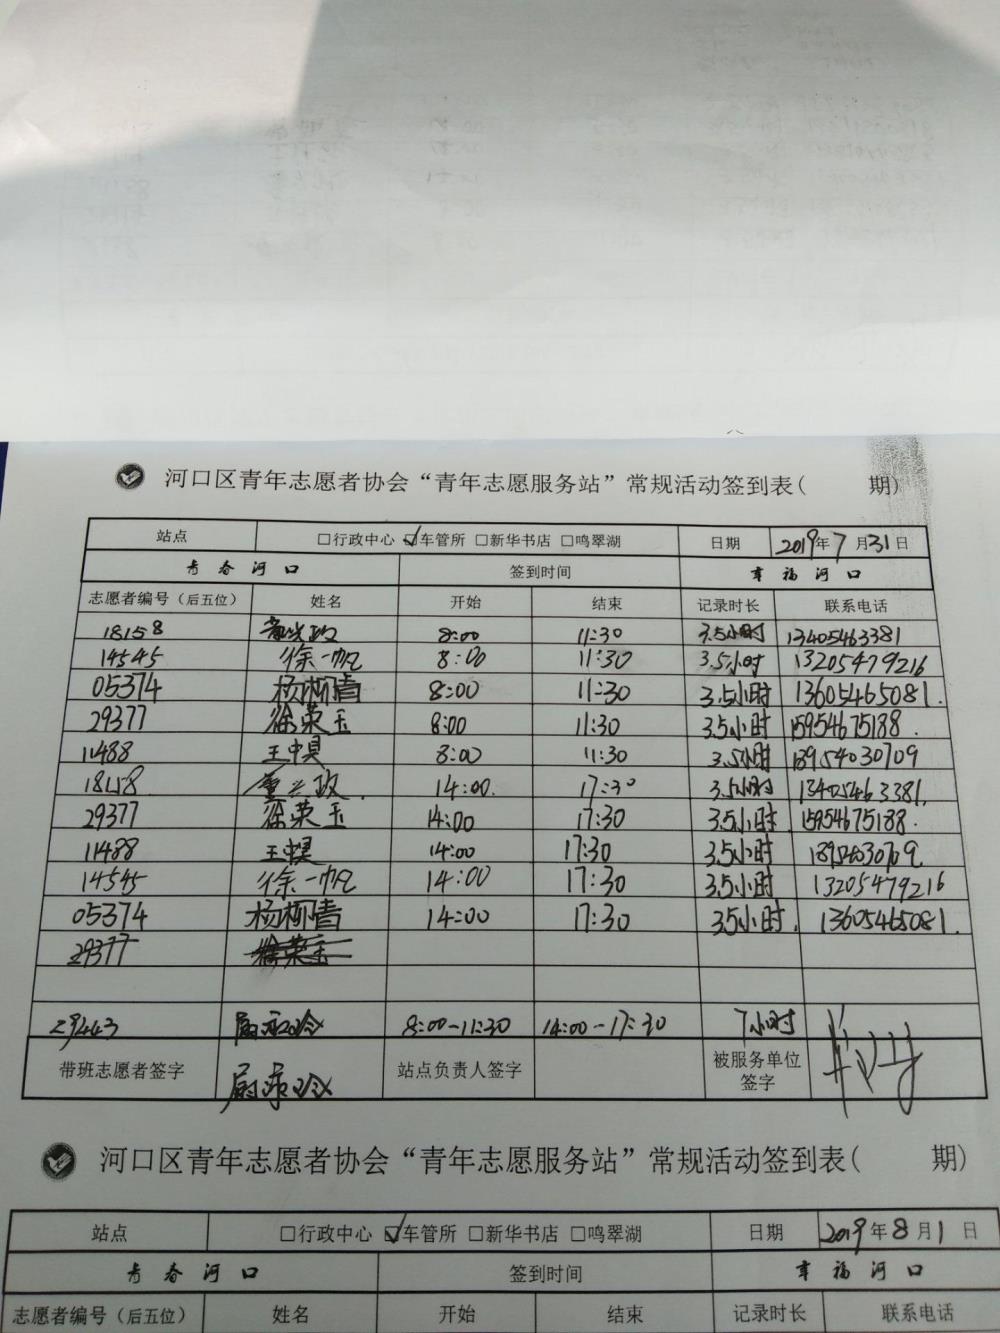 河口区青年志愿者协会“青年志愿服务站”常规活动签到表( 期)
站点 □行政中心 ☑车管所 □新华书店 □鸣翠湖 日期 2019年7月31日
青春河口 签到时间 幸福河口
志愿者编号（后五位） 姓名 开始 结束 记录时长 联系电话
18158 8:00 11:30 3.5小时 13405463381
14545 徐一帆 8:00 11:30 3.5小时 13205479216
05374 杨柳青 8:00 11:30 3.5小时 13605465081.
29377 徐荣玉 8:00 11:30 3.5小时 15954675188.
11488 8:00 11:30 3.5小时 18954030709
14:00. 17:30 3.5小时 13405463381.
29377 徐荣玉 14:00 17:30 3.5小时 15954675188.
11488 14:00 17:30 3.5小时 18954030709.
14545 徐一帆 14:00 17:30 3.5小时 13205479216
05374 杨柳青 14:00 17:30 3.5小时. 13605465081.
29377 徐荣玉
29443 8:00-11:30 14:00-17:30 7小时
带班志愿者签字 站点负责人签字 被服务单位签字
河口区青年志愿者协会“青年志愿服务站”常规活动签到表( 期)
站点 □行政中心 ☑车管所 □新华书店 □鸣翠湖 日期 2019年8月1日
青春河口 签到时间 幸福河口
志愿者编号（后五位） 姓名 开始 结束 记录时长 联系电话